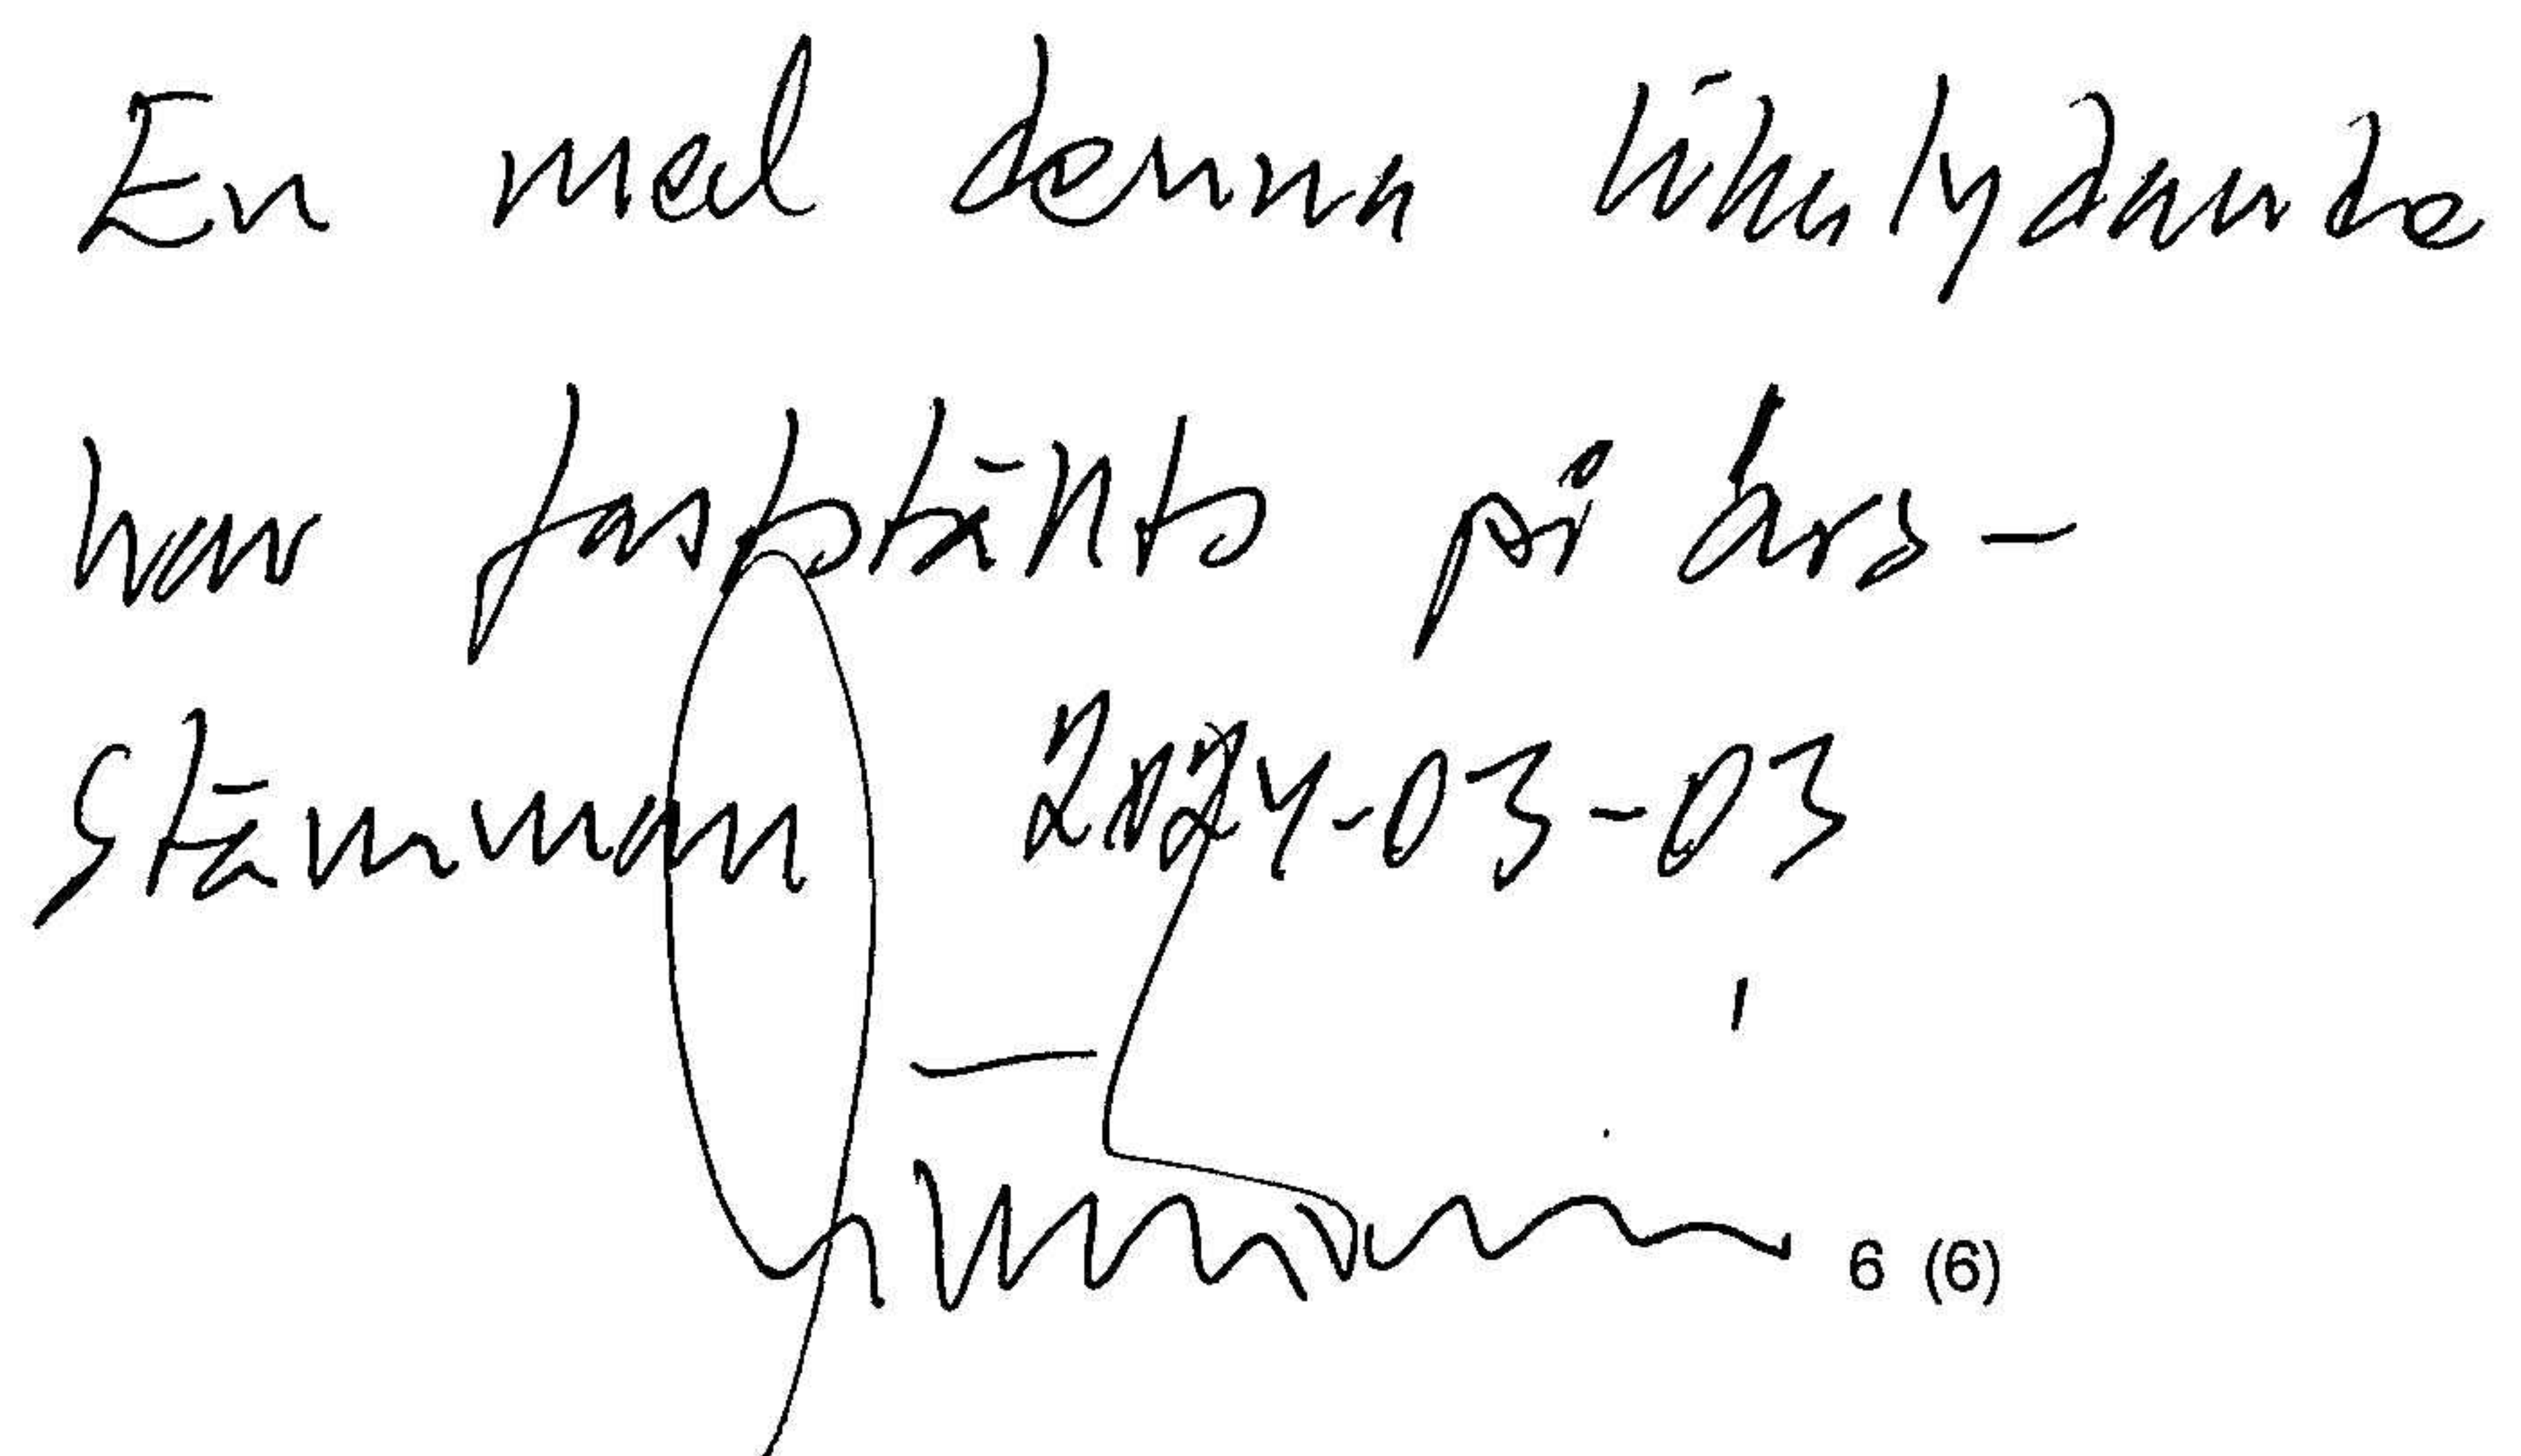 En med denna likalydande
har fastställts på års-
Stämman 2024-03-03
6 (6)